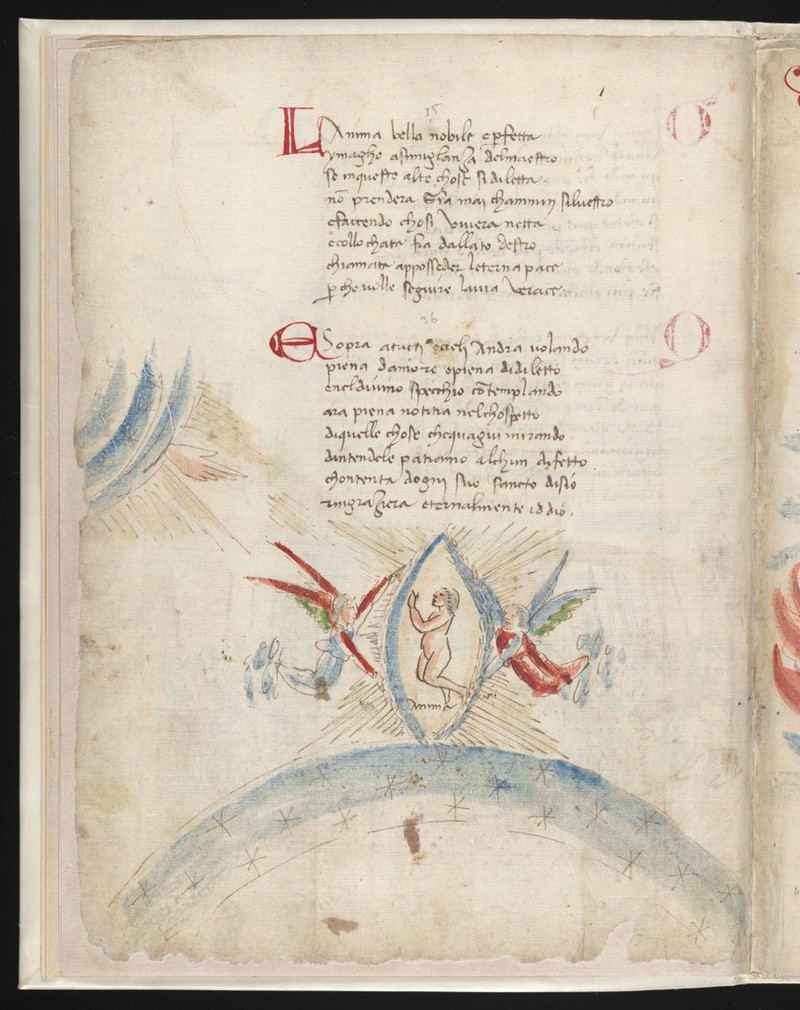 35
LAnima bella nobile e pfetta
ymagho asimiglanza delmaestro
se inqueste alte chose sidiletta
nō prendera Gia mai chammin siluestro
efaccendo chosi Viuera netta
ecollochata fia dallato destro
chiamata apposseder leterna pace
p che uolle seguire lauia verace
36
ESopra atucti ecieli Andra uolando
piena damore epiena didiletto
eneldiuino specchio cōtemplando
ara piena notitia nelchospetto
diquelle chose checquagiu mirando
dintendele patiamo alchun difetto
chontenta dogni suo sancto disio
ringraziera eternalmente iddio.
Anima